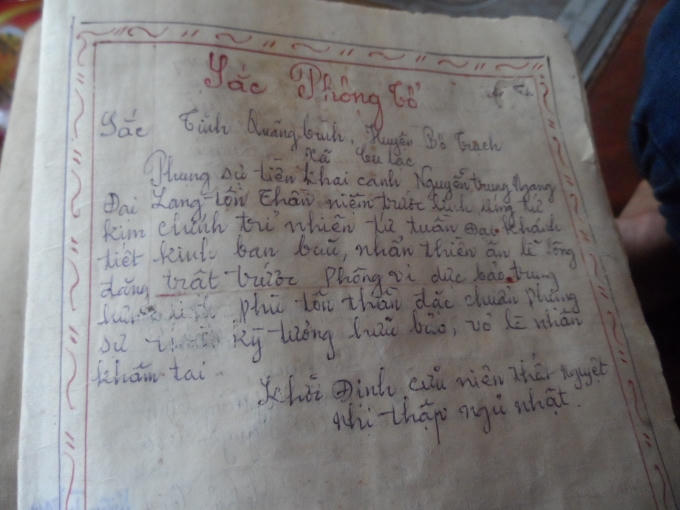 Sắc Phong tổ
Sắc Tỉnh Quảng bình, Huyện Bố Trạch
Xã Cù lạc
Phụng sự tiền khai canh Nguyễn trung Ngang
Đại Lang-tôn Thần niệm trước linh ứng tứ
kim chính trị nhiên tứ tuần đại khánh
tiết kinh ban bửu, nhân thiên ân lễ long
đăng trật trước phong vi dực bảo trung
hưng phù tôn thần đặc chuẩn phụng
sự kỳ tương hưu bảo, vỏ lê nhân
khâm tai
Khải Định cửu niên thất nguyệt
nhị thập ngũ nhật.